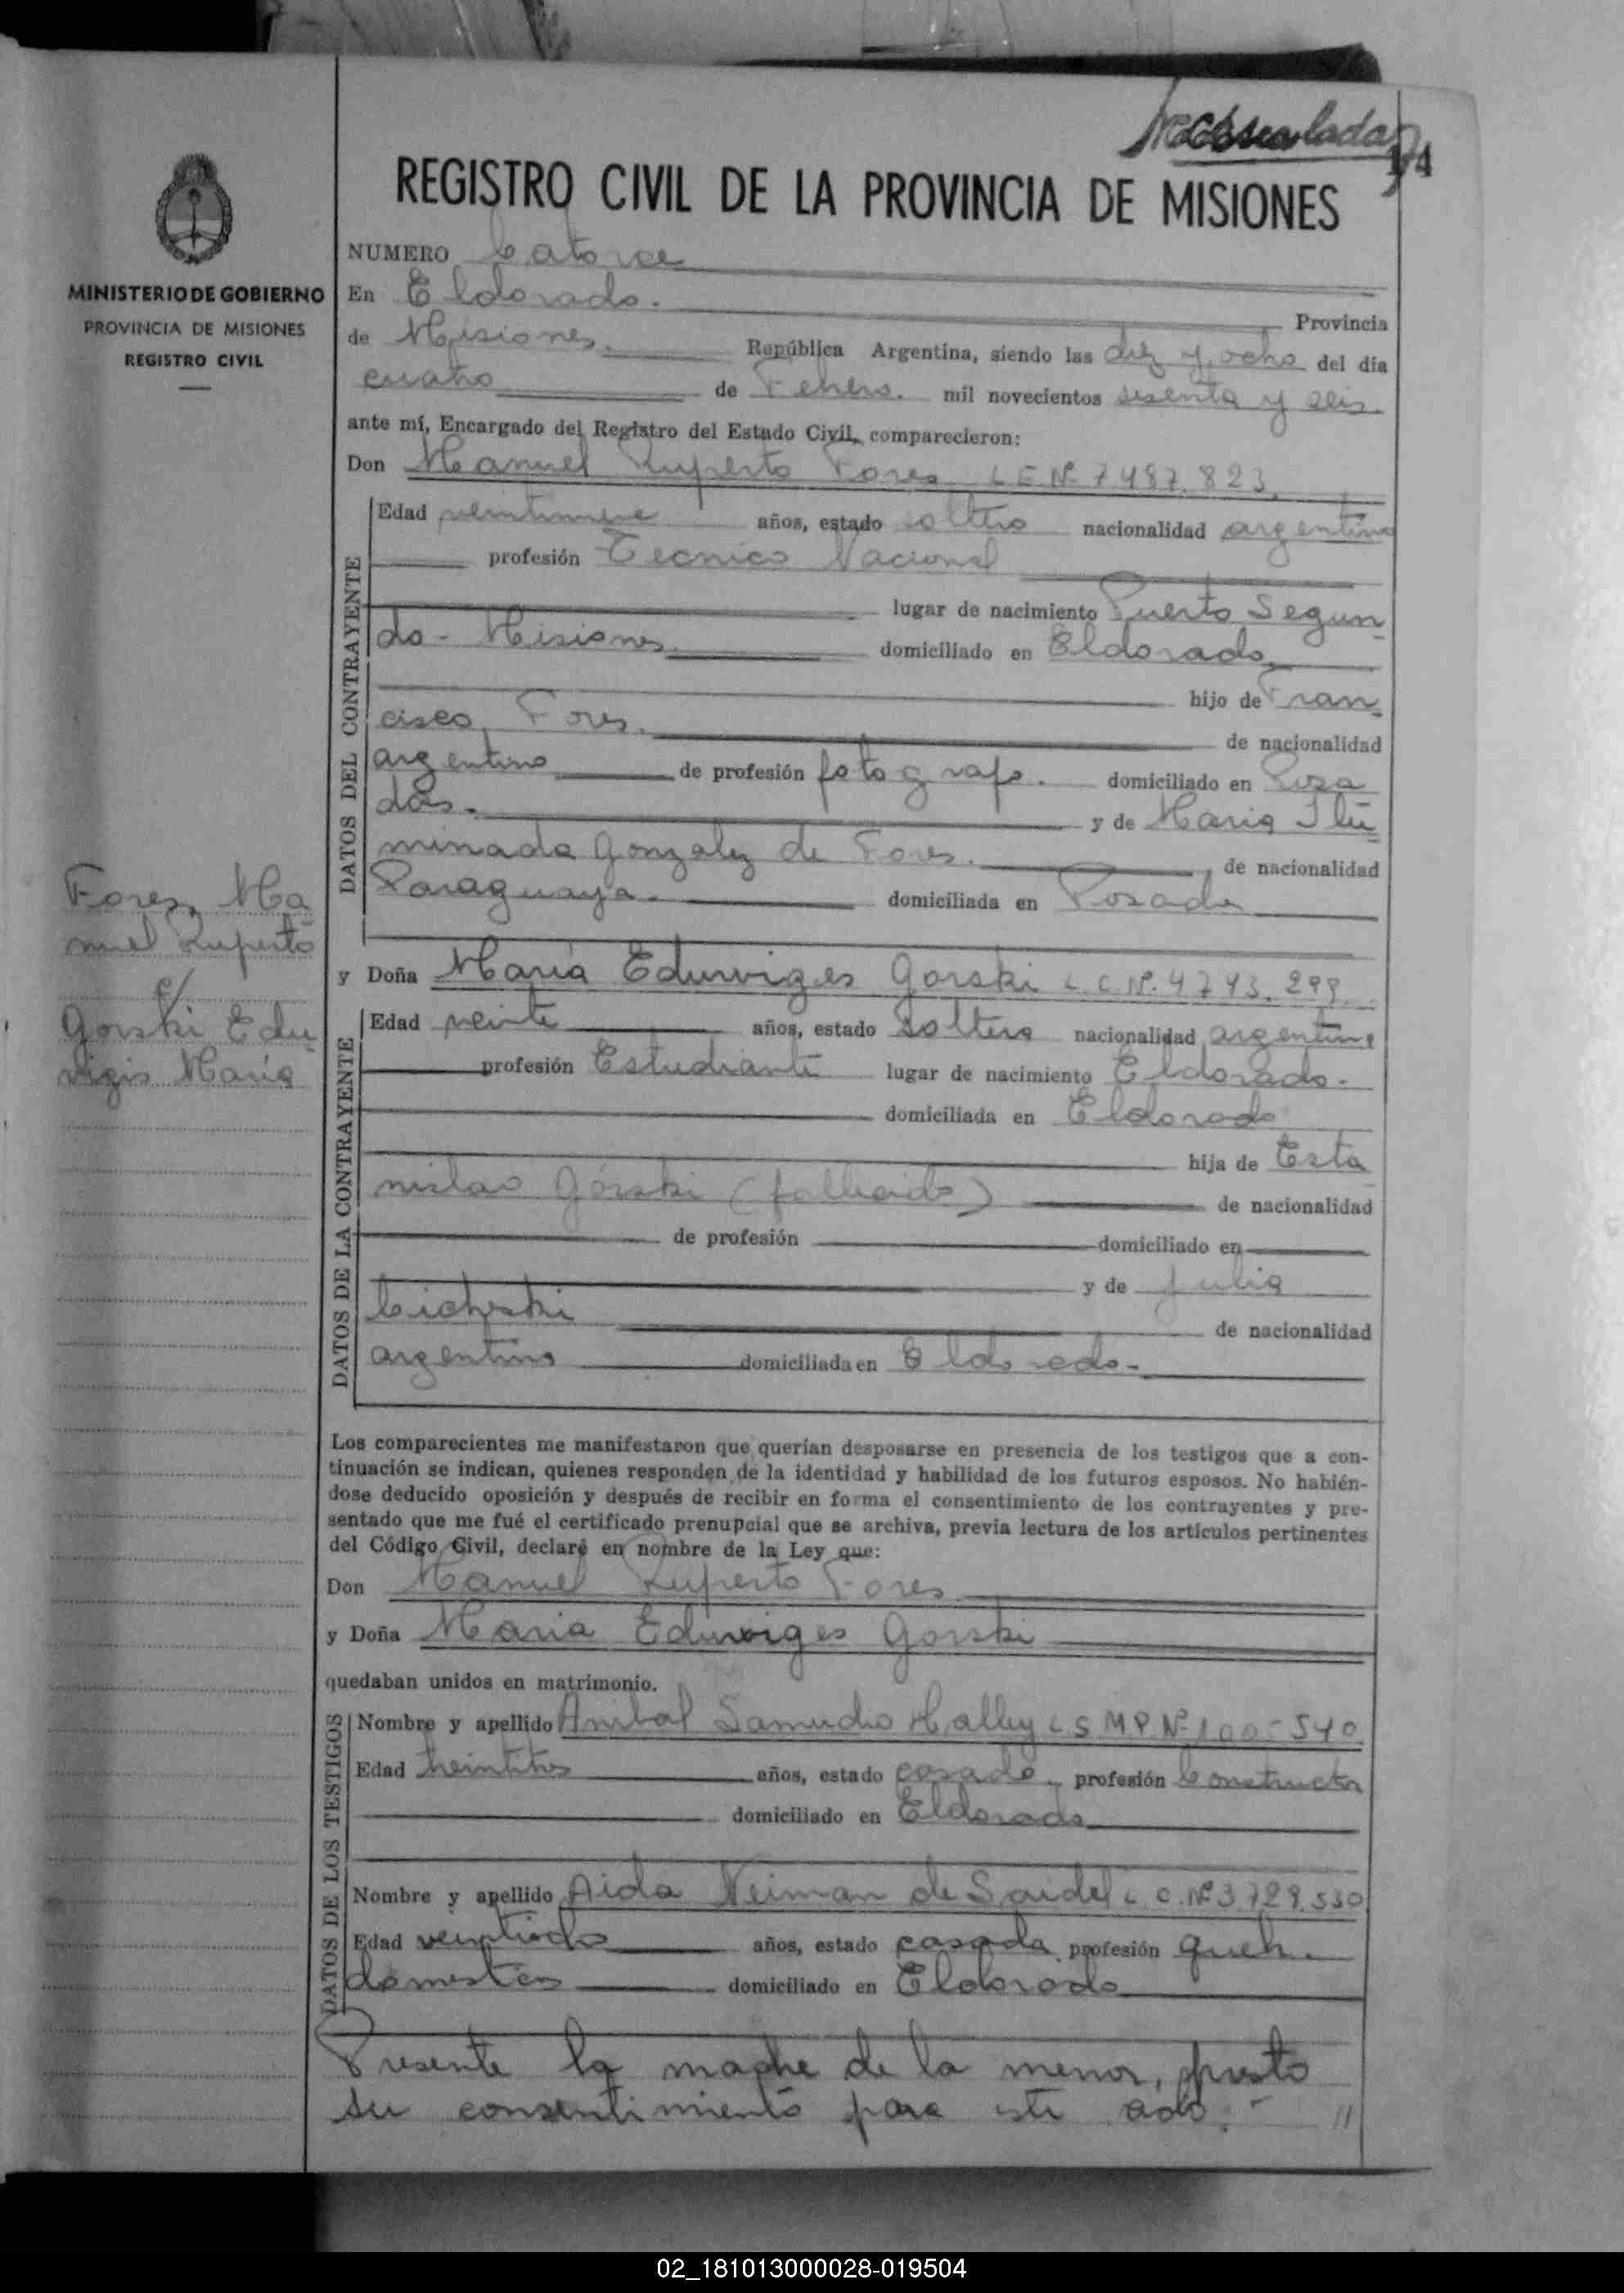 14
REGISTRO CIVIL DE LA PROVINCIA DE MISIONES
MINISTERIO DE GOBIERNO
PROVINCIA DE MISIONES
REGISTRO CIVIL
NUMERO Catorce
En Eldorado. Provincia
de Misiones. República Argentina, siendo las diez y ocho del día
cuatro de Febrero. mil novecientos sesenta y seis.
ante mí, Encargado del Registro del Estado Civil, comparecieron:
Don Manuel Ruperto Fores L E Nº 7487.823.
DATOS DEL CONTRAYENTE
Edad veintinueve años, estado soltero nacionalidad argentina
profesión Tecnico Nacional
lugar de nacimiento Puerto Segun
do - Misiones domiciliado en Eldorado
hijo de Fran
cisco Fores. de nacionalidad
argentino de profesión fotografo. domiciliado en Posa
das. y de Maria Ilu
minada Gonzalez de Fores. de nacionalidad
Paraguaya. domiciliada en Posadas
Fores, Ma
nuel Ruperto
c/
Gorski Edu
vigis Maria
y Doña Maria Eduviges Gorski L.C.Nº. 4743.299.
DATOS DE LA CONTRAYENTE
Edad veinte años, estado soltera nacionalidad argentina
profesión Estudiante lugar de nacimiento Eldorado.
domiciliada en Eldorado
hija de Esta
nislao Gorski (fallecido) de nacionalidad
de profesión domiciliado en
y de Julia
de nacionalidad
argentina domiciliada en Eldorado.
Los comparecientes me manifestaron que querían desposarse en presencia de los testigos que a con-
tinuación se indican, quienes responden de la identidad y habilidad de los futuros esposos. No habién-
dose deducido oposición y después de recibir en forma el consentimiento de los contrayentes y pre-
sentado que me fué el certificado prenupcial que se archiva, previa lectura de los artículos pertinentes
del Código Civil, declaré en nombre de la Ley que:
Don Manuel Ruperto Fores
y Doña Maria Eduviges Gorski
quedaban unidos en matrimonio.
DATOS DE LOS TESTIGOS
Nombre y apellido Anibal Samudio
Edad años, estado casado profesión Constructor
domiciliado en Eldorado
Nombre y apellido Aida Neiman de Saidel L C. Nº 3.729.530
Edad veintidos años, estado casada profesión queh.
domesticos domiciliado en Eldorado
Presente la madre de la menor, presto
su consentimiento para este acto. - //
02_181013000028-019504